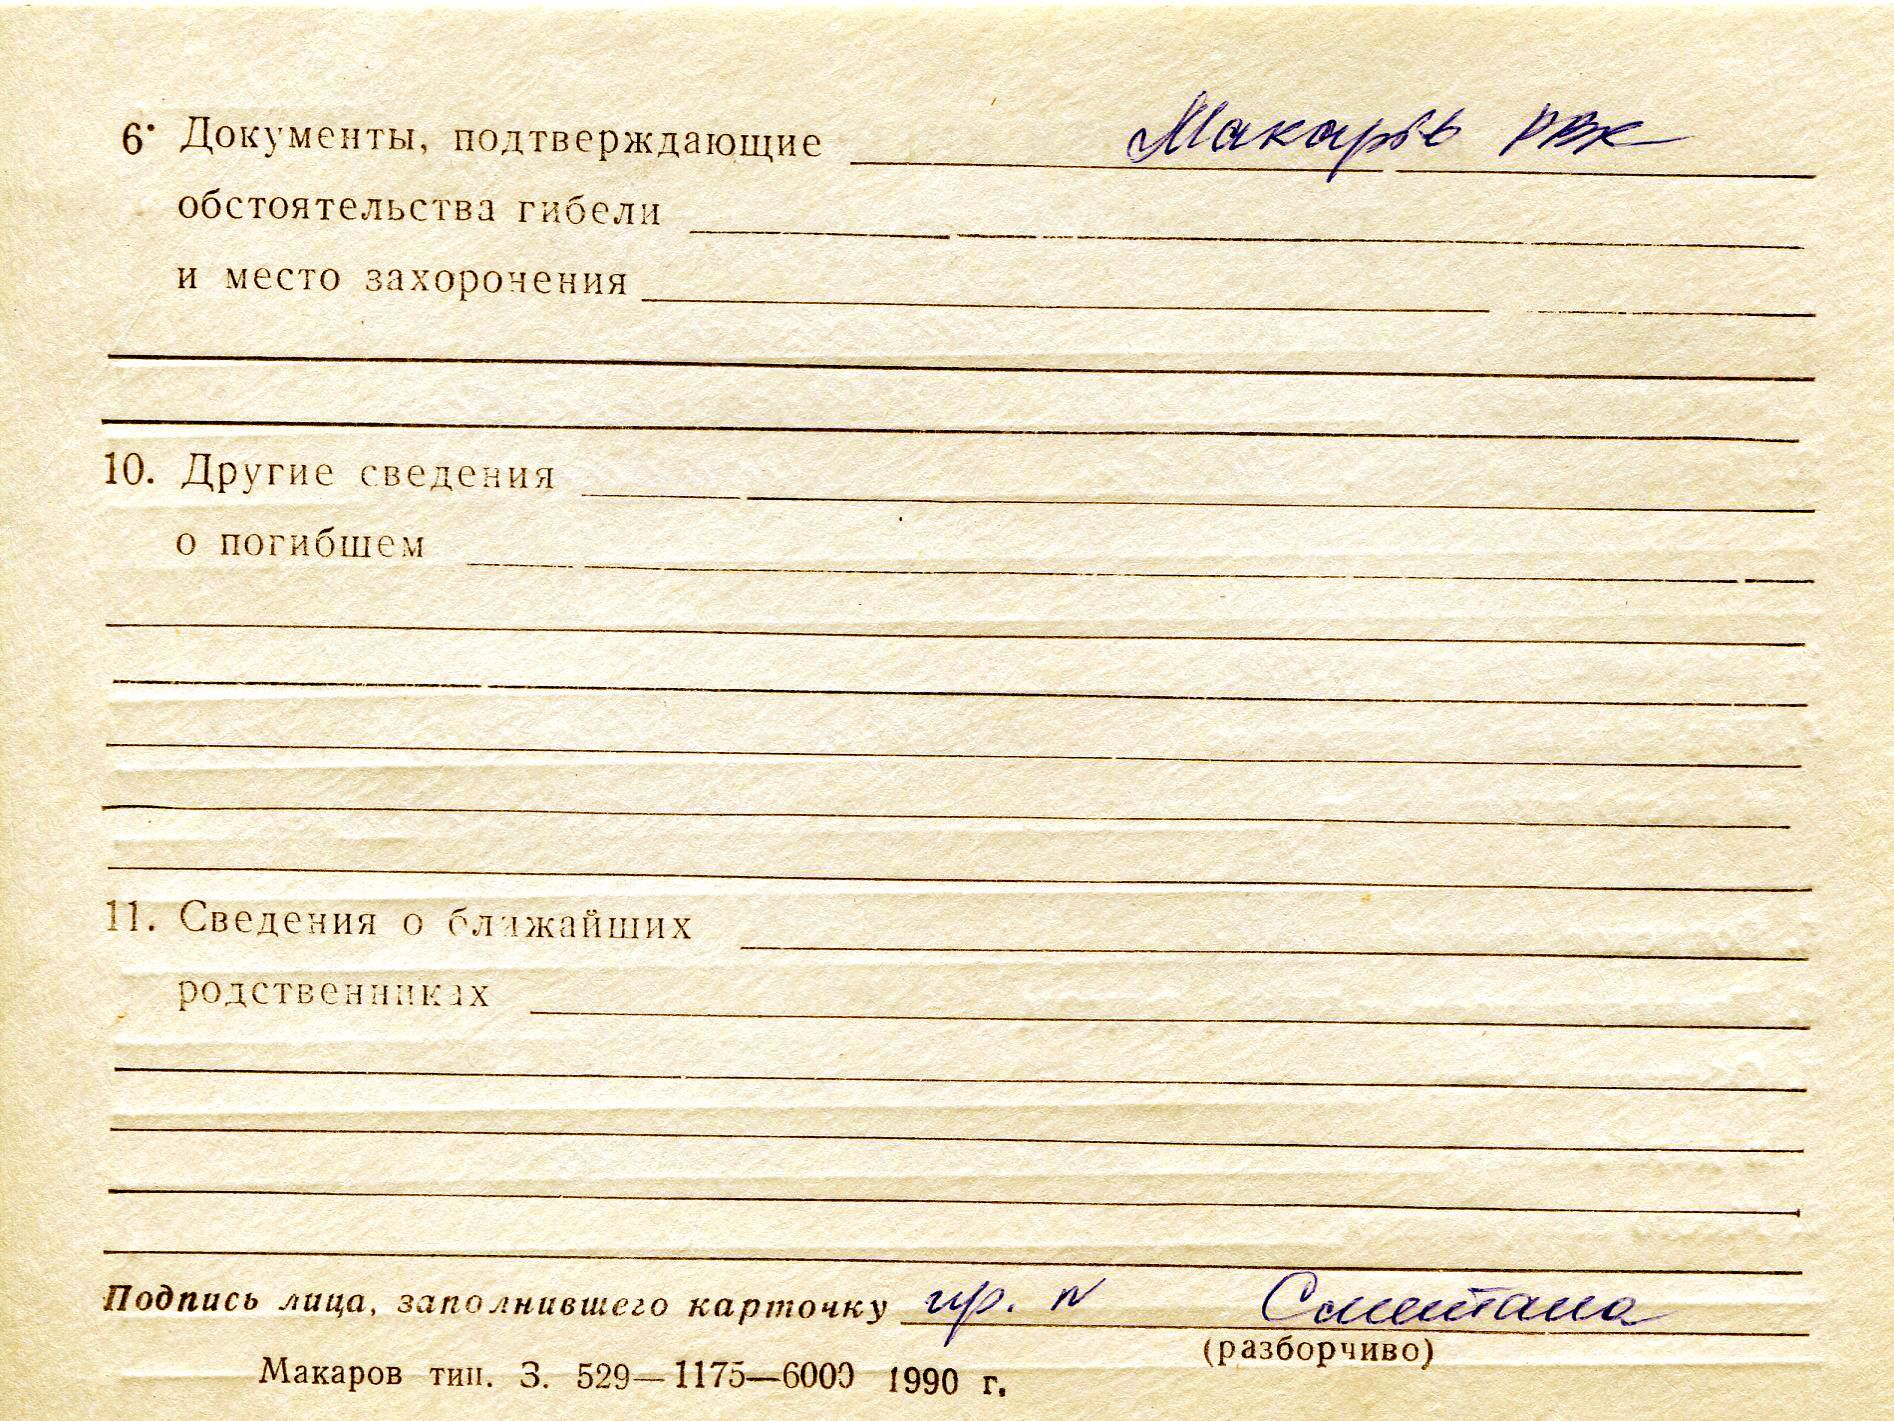 6. Документы, подтверждающие Макарів РВК
обстоятельства гибели
и место захоронения
10. Другие сведения
о погибшем
11. Сведения о ближайших
родственниках
Подпись лица, заполнившего карточку пр. Сметана
(разборчиво)
Макаров тип. З. 529—1175—6000 1990 г.